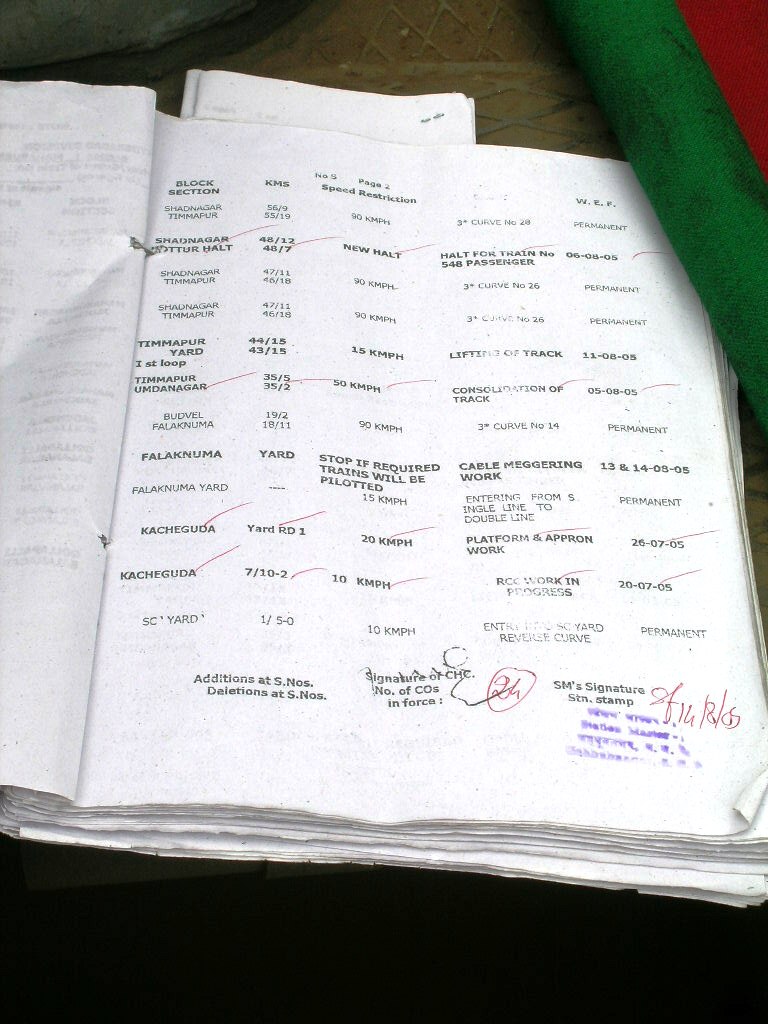 No 5 Page 2
BLOCK SECTION KMS Speed Restriction W. E. F.
SHADNAGAR 56/9
TIMMAPUR 55/19 90 KMPH 3* CURVE No 28 PERMANENT
SHADNAGAR 48/12
KOTTUR HALT 48/7 NEW HALT HALT FOR TRAIN No 06-08-05
548 PASSENGER
SHADNAGAR 47/11
TIMMAPUR 46/18 90 KMPH 3* CURVE No 26 PERMANENT
SHADNAGAR 47/11
TIMMAPUR 46/18 90 KMPH 3* CURVE No 26 PERMANENT
TIMMAPUR 44/15
YARD 43/15 15 KMPH LIFTING OF TRACK 11-08-05
I st loop
TIMMAPUR 35/5
UMDANAGAR 35/2 50 KMPH CONSOLIDATION OF 05-08-05
TRACK
BUDVEL 19/2
FALAKNUMA 18/11 90 KMPH 3* CURVE No 14 PERMANENT
FALAKNUMA YARD STOP IF REQUIRED CABLE MEGGERING 13 & 14-08-05
TRAINS WILL BE WORK
PILOTTED
FALAKNUMA YARD ---- 15 KMPH ENTERING FROM S PERMANENT
INGLE LINE TO
DOUBLE LINE
KACHEGUDA Yard RD 1 20 KMPH PLATFORM & APPRON 26-07-05
WORK
KACHEGUDA 7/10-2 10 KMPH RCC WORK IN 20-07-05
PROGRESS
SC'YARD' 1/ 5-0 10 KMPH ENTRY SC YARD PERMANENT
REVERSE CURVE
Additions at S.Nos. Signature of CHC. SM's Signature
Deletions at S.Nos. No. of COs Stn. stamp
in force : 24 14/8/05
Station Master